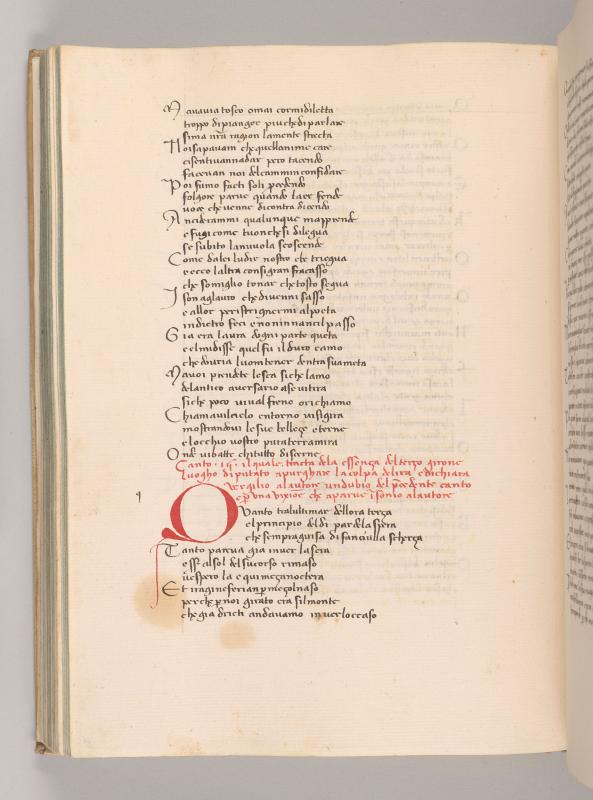 Mavavia tosco omai cormi diletta
troppo dipianger piuchedi parlare
sima nr̃a ragion lamente strecta
Noi sapavam chequellanime care
cisentivannadar pero tacendo
facevan noi delcammin confidare
Poi fumo facti soli p̱cedendo
folgore parve quando laer fende
voce che venne dicontra dicendo
Ancideranmi qualunque mapprende
efugi come tuon chesi dilegua
se subito lanuvola scoscende
Come dalei ludir nostro ebe triegua
et ecco laltra consigran fracasso
che somiglio tonar chetosto segua
I son aglauro chedivenni sasso
et allor per istrignermi alpoeta
indietro feci e noninnanci l passo
Gia era laura dogni parte queta
et el midisse quel fu il duro camo
che dovria luom tener dentra suameta
Mavoi prendete lesca siche lamo
delantico aversario ase vitira
siche poco vival freno orichiamo
Chiamavi lcielo entorno visigira
mostrandovi lesue belleçe eterne
et locchio vostro pur a terra mira
Onde vibatte chi tutto discerne
Canto .15. il quale tracta dela essença del terço girone
luogho diputato a purghare la colpa delira e dichiara
Vergilio al autore un dubio del precedente canto
e per una visione che aparve i sonio al autore
Quanto tralultimar dellora terça
el principio del dì par dela spera
che sempr aguisa di fanciulla scherça
Tanto pareva gia inver la sera
esser al sol del su corso rimaso
vespero la e qui meçanocte era
Et i raggi ne ferian per meço l naso
perche per noi girato era sil monte
che gia dricti andavamo inver loccaso